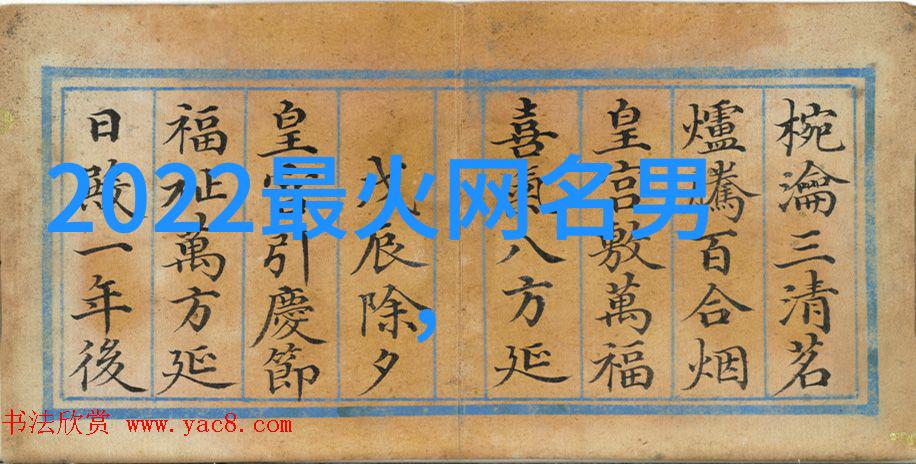 椀瀹三清茗
爐騰百合烟
皇宮敷萬福
喜氣八方延
戊辰除夕
皇宮引慶節
福祉萬方延
日殿一年後
2022最火网名男
,
书法欣赏 www.yac8.com